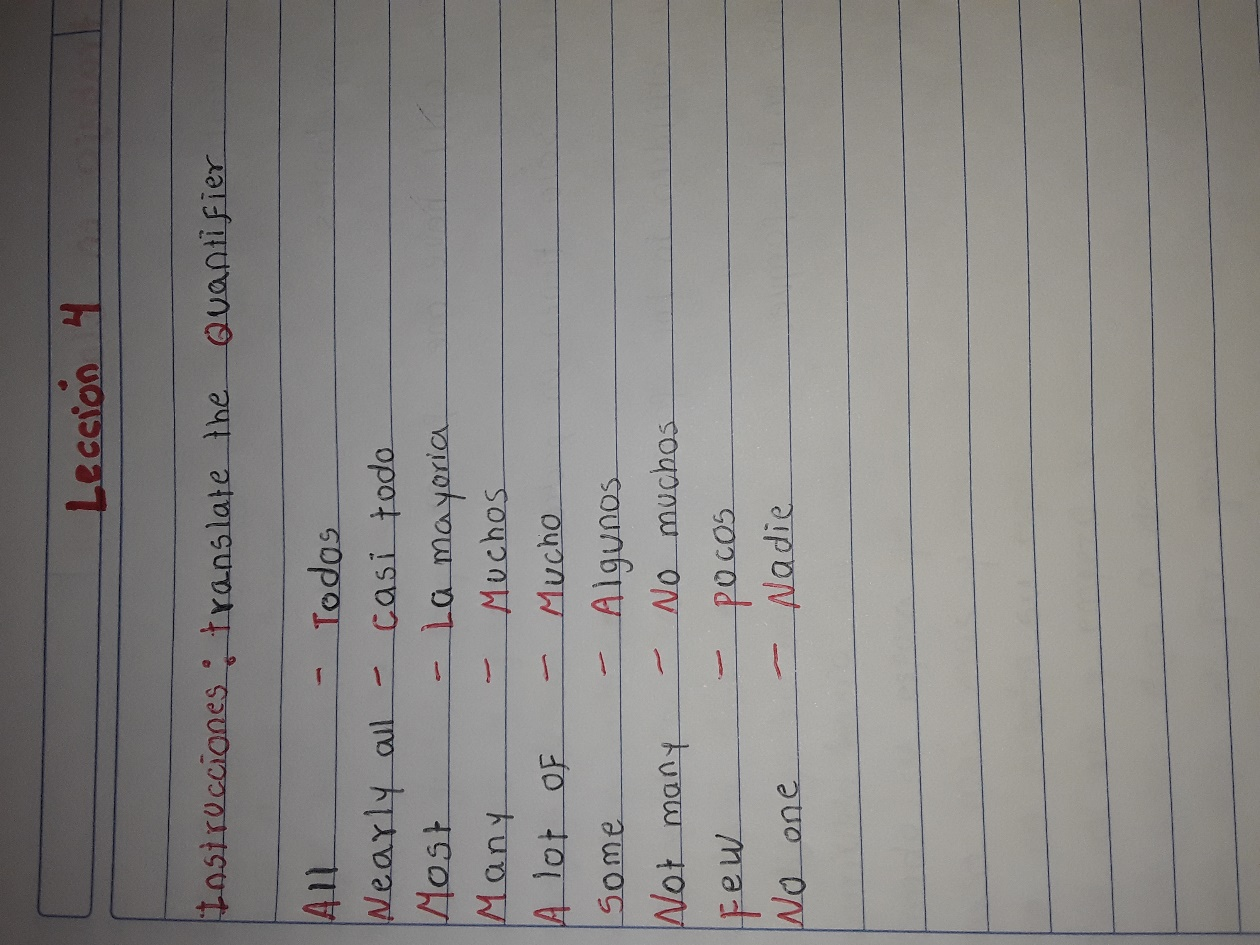 Lección 4
Instrucciones: translate the Quantifier
All - Todos
Nearly all - casi todo
Most - La mayoria
Many - Muchos
A lot of - Mucho
Some - Algunos
Not many - No muchos
Few - Pocos
No one - Nadie